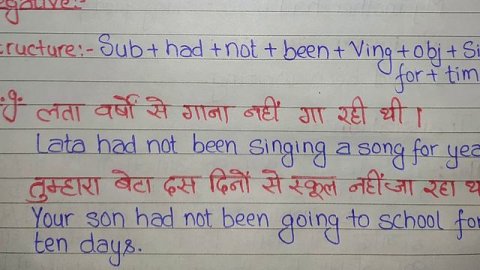 Structure:- Sub + had + not + been + Ving + obj + Si
for + tim
लता वर्षों से गाना नहीं गा रही थी ।
Lata had not been singing a song for yea
तुम्हारा बेटा दस दिनों से स्कूल नहीं जा रहा थ
Your son had not been going to school fo
ten days.